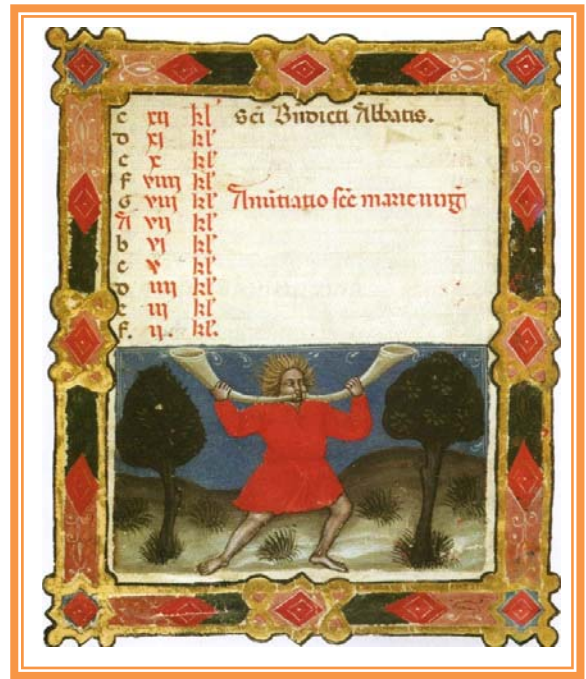 c xii kl' Sci Bn̄dicti Abbatis.
D xi kl'
c x kl'
f viiii kl'
G viii kl' Anūtiatio scē marie uirḡ
A vii kl'
b vi kl'
c v kl'
D iiii kl'
e iii kl'
f. ii. kl'.